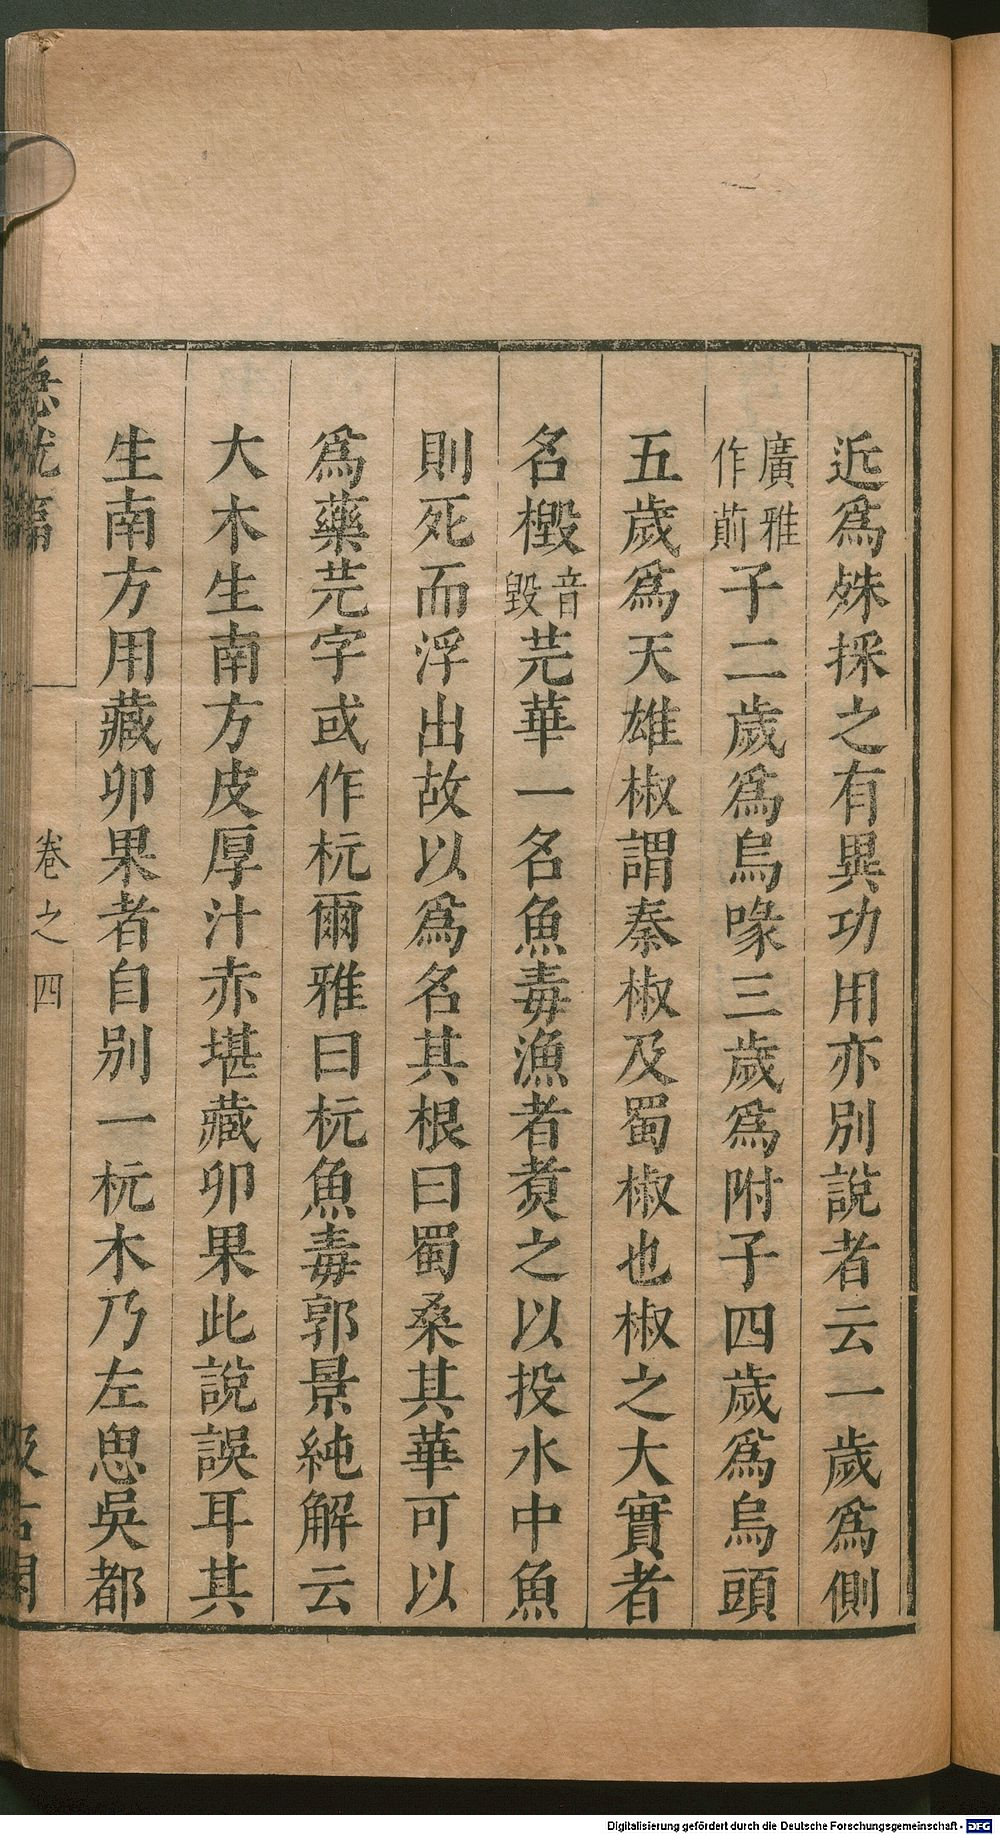 近爲殊採之有異功用亦別說者云一歲爲側
廣雅作萴子二歲爲烏喙三歲爲附子四歲爲烏頭
五歲爲天雄椒謂秦椒及蜀椒也椒之大實者
名檓音毀芫華一名魚毒漁者煑之以投水中魚
則死而浮出故以爲名其根曰蜀桑其華可以
爲藥芫字或作杬爾雅曰杬魚毒郭景純解云
大木生南方皮厚汁赤堪藏卵果此說誤耳其
生南方用藏卵果者自別一杬木乃左思吳都
急就篇
卷之四
汲古閣
Digitalisierung gefördert durch die Deutsche Forschungsgemeinschaft - DFG